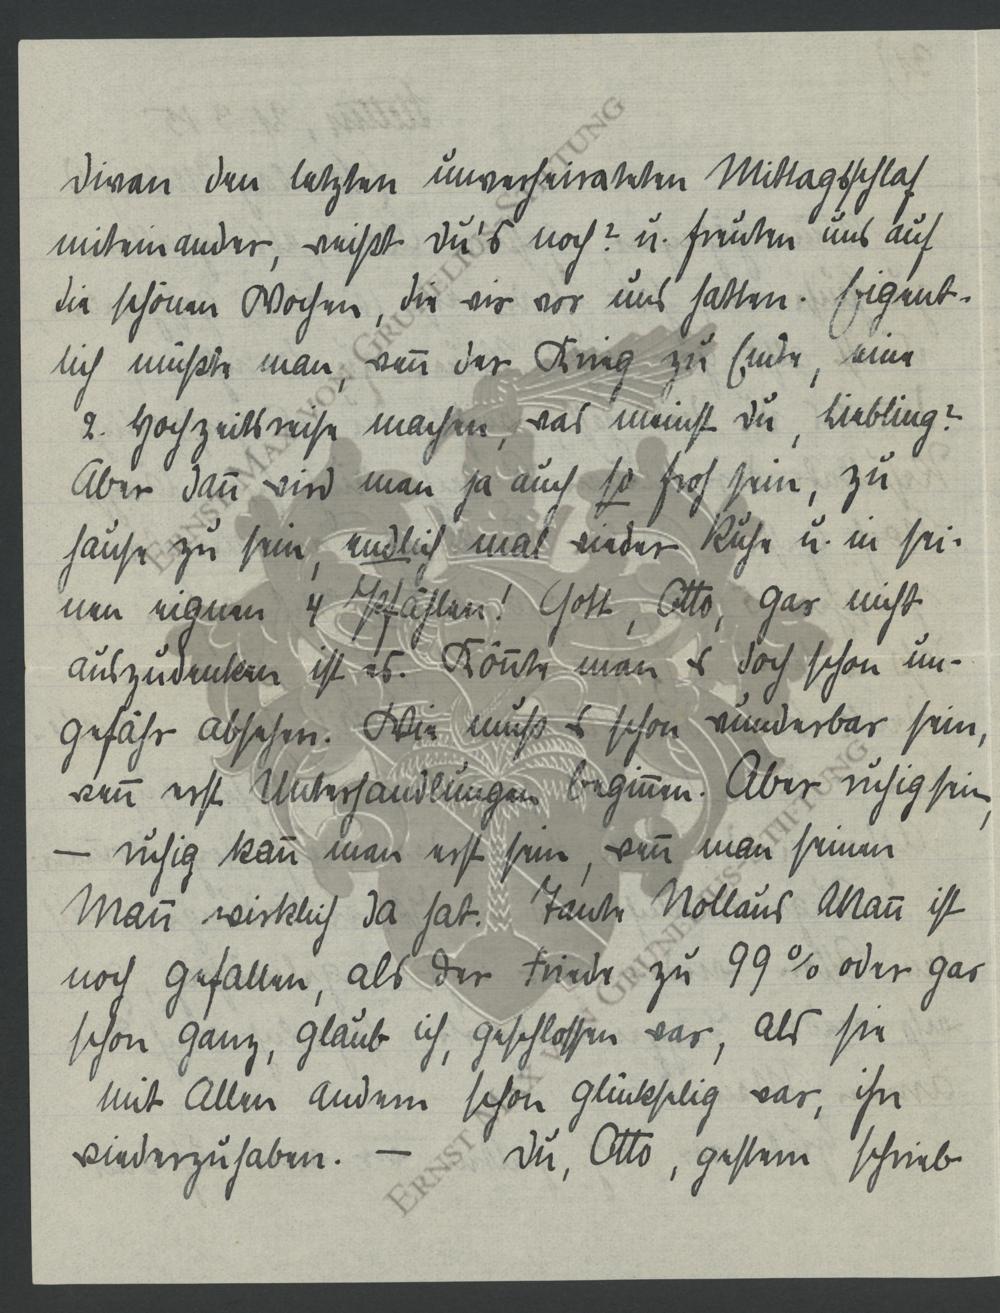 Divan den letzten unverheirateten Mittagsschlaf
miteinander, weißt Du's noch? u. freuten uns auf
die schönen Wochen, die wir vor uns hatten. Eigent-
lich müßte man, wen̅ der Krieg zu Ende, eine
2. Hochzeitsreise machen, was meinst Du, Liebling?
Aber dan̅ wird man ja auch so froh sein, zu
hause zu sein, endlich mal wieder Ruhe u. in sei-
nen eignen 4 Pfählen! Gott, Otto, gar nicht
auszudenken ist es. Kön̅te man es doch schon un-
gefähr absehen. Wie muß es schon wunderbar sein,
wen̅ erst Unterhandlungen begin̅en. Aber ruhig sein,
— ruhig kan̅ man erst sein, wen̅ man seinen
Man̅ wirklich da hat. Tante Nollaus Man̅ ist
noch gefallen, als der Friede zu 99 % oder gar
schon ganz, glaub ich, geschlossen war, als sie
mit Allen andern schon glückselig war, ihn
wiederzuhaben. — Du, Otto, gestern schrieb
ERNST MAX VON GRUNELIUS-STIFTUNG
ERNST MAX VON GRUNELIUS-STIFTUNG